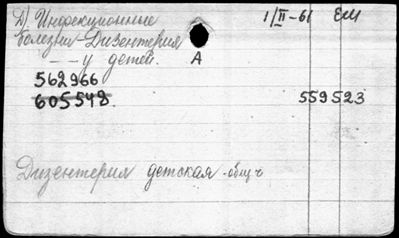 Д) Инфекционные 1/II-61 ЕМ
болезни-Дизентерия
– – у детей. А
562966
605548. 559523
Дизентерия детская - общ. ч